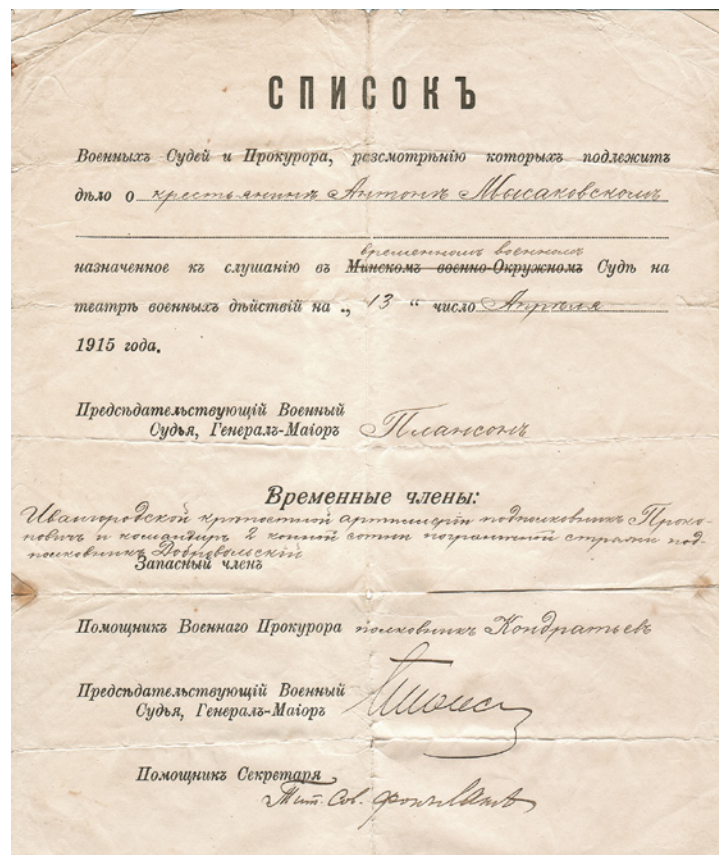 СПИСОКЪ
Военныхъ Судей и Прокурора, разсмотрѣнію которыхъ подлежитъ
дѣло о крестьянинѣ Антонѣ Масаковскомъ
временномъ военномъ
назначенное къ слушанію въ Минскомъ военно-Окружномъ Судѣ на
театрѣ военныхъ дѣйствій на „ 13 “ число Апрѣля
1915 года.
Предсѣдательствующій Военный
Судья, Генералъ-Маіоръ Плансонъ
Временные члены:
Ивангородской крѣпостной артиллеріи подполковникъ Проко-
повичъ и командиръ 2 конной сотни пограничной стражи под-
полковникъ Добровольскій
Запасный членъ
Помощникъ Военнаго Прокурора полковникъ Кондратьевъ
Предсѣдательствующій Военный
Судья, Генералъ-Маіоръ
Помощникъ Секретаря
Тит. Сов. фонъ